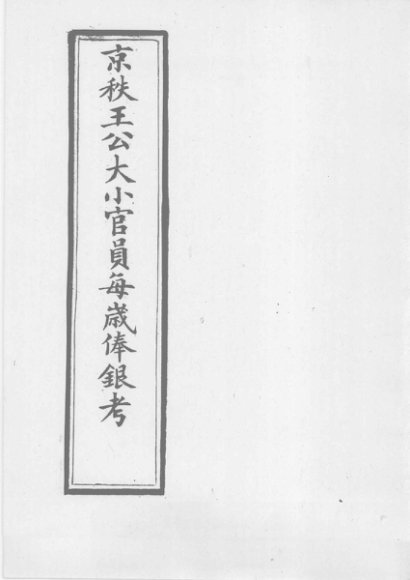 京秩王公大小官員每歲俸銀考